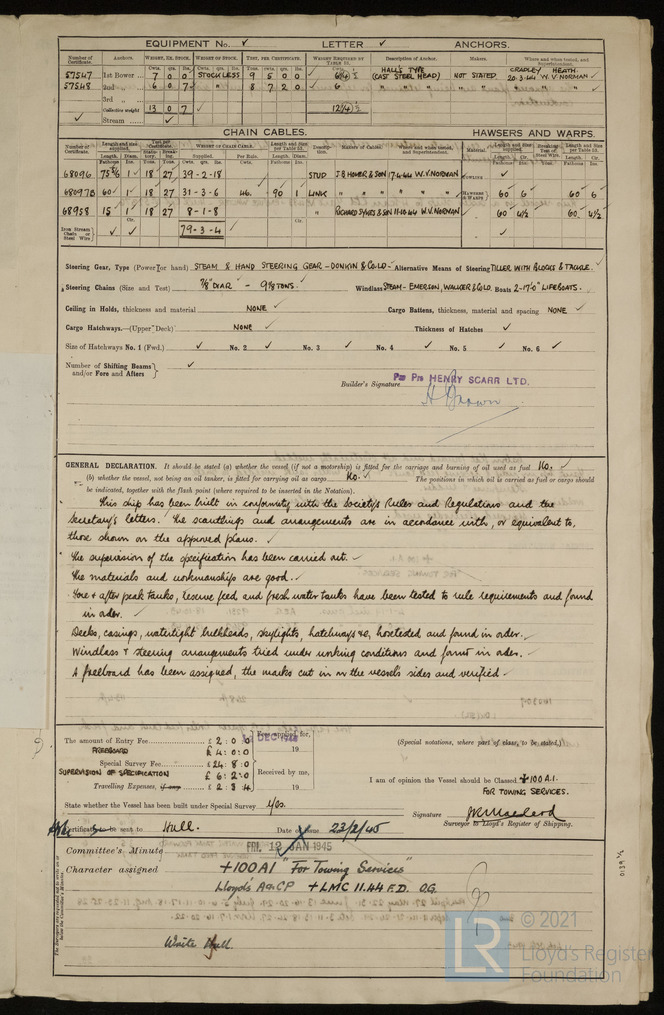 EQUIPMENT No. ✓ LETTER ✓ ANCHORS.
Number of Certificate. Anchors. WEIGHT, EX. STOCK. WEIGHT OF STOCK. TEST, PER CERTIFICATE. WEIGHT REQUIRED BY TABLE 53. Description of Anchor. Makers. Where and when tested, and Superintendent.
Cwts. qrs. lbs. Cwts. qrs. lbs. Tons. cwts. qrs. lbs. Cwts. HALL'S TYPE CRADLEY HEATH.
57547 1st Bower 7 0 0 STOCKLESS 9 5 0 0 (CAST STEEL HEAD) NOT STATED 20.3.44 W.V. NORMAN ✓
57548 2nd „ 6 0 7 8 7 2 0 6 „ „ „ „ „ „ „
3rd „
Collective weight 13 0 7 12¼
✓ Stream ✓
CHAIN CABLES. HAWSERS AND WARPS.
Number of Certificate. Length and size supplied. Test per Certificate. WEIGHT OF CHAIN CABLE. Length and Size per Table 53. Description. Makers of Cables. Where and when tested, and Superintendent. Material. Length and size supplied. Breaking Test of Steel Wire. Length and Size per Table 53.
Length. Diam. Statutory. Breaking. Supplied. Per Rule. Length. Diam. Length. Cir. Length. Cir.
68096 1 18 27 39-2-18 STUD J.B. HOMER & SON 7.4.44 W.V. NORMAN
68097B 60 1 18 27 31-3-6 90 1 LINK HAWSERS & WARPS 60 6 60 6
68958 15 1 18 27 8-1-8 „ RICHARD SYKES & SON 11.10.44 W.V. NORMAN 60 4½ 60 4½
Iron Stream Chain or Steel Wire ✓ ✓ 79-3-4
Steering Gear, Type (Power or hand) STEAM & HAND STEERING GEAR - DONKIN & CO LD - Alternative Means of Steering TILLER WITH BLOCKS & TACKLE. ✓
Steering Chains (Size and Test) 7/8" DIAR - 9⅛ TONS. Windlass STEAM - EMERSON, WALKER & CO LD. Boats 2-17'0" LIFEBOATS.
Ceiling in Holds, thickness and material NONE ✓ Cargo Battens, thickness, material and spacing NONE ✓
Cargo Hatchways.—(Upper Deck) NONE ✓ Thickness of Hatches ✓
Size of Hatchways No. 1 (Fwd.) ✓ No. 2 ✓ No. 3 ✓ No. 4 ✓ No. 5 ✓ No. 6 ✓
Number of Shifting Beams and/or Fore and Afters ✓
Builder's Signature HENRY SCARR LTD.
GENERAL DECLARATION. It should be stated (a) whether the vessel (if not a motorship) is fitted for the carriage and burning of oil used as fuel No. ✓
(b) whether the vessel, not being an oil tanker, is fitted for carrying oil as cargo No. ✓ The positions in which oil is carried as fuel or cargo should
be indicated, together with the flash point (where required to be inserted in the Notation).
This ship has been built in conformity with the Society's Rules and Regulations and the
Secretary's letters. The scantlings and arrangements are in accordance with, or equivalent to,
those shown on the approved plans. ✓
The supervision of the specification has been carried out. ✓
The materials and workmanship are good. ✓
Fore & after peak tanks, reserve feed and fresh water tanks have been tested to rule requirements and found
in order. ✓
Decks, casings, watertight bulkheads, skylights, hatchways &c, hosetested and found in order. ✓
Windlass & steering arrangements tried under working conditions and found in order. ✓
A freeboard has been assigned, the marks cut in on the vessel's sides and verified ✓
The amount of Entry Fee £ 2 : 0 : 0 Fees applied for,
FREEBOARD £ 4 : 0 : 0 19
Special Survey Fee £ 24 : 8 : 0
SUPERVISION OF SPECIFICATION £ 6 : 2 : 0 Received by me,
Travelling Expenses, if any £ 2 : 3 : 4 19
(Special notations, where part of class, to be stated.)
I am of opinion the Vessel should be Classed ✠100A1.
FOR TOWING SERVICES.
State whether the Vessel has been built under Special Survey Yes.
Signature
Surveyor to Lloyd's Register of Shipping.
Certificate to be sent to Hull. Date of issue 23/2/45
Committee's Minute FRI. 12 JAN 1945
Character assigned +100A1 "For Towing Services"
Lloyds A&CP +LMC 11.44 F.D. O.G.
Write Hull.
© 2021
LR Lloyd's Register
Foundation